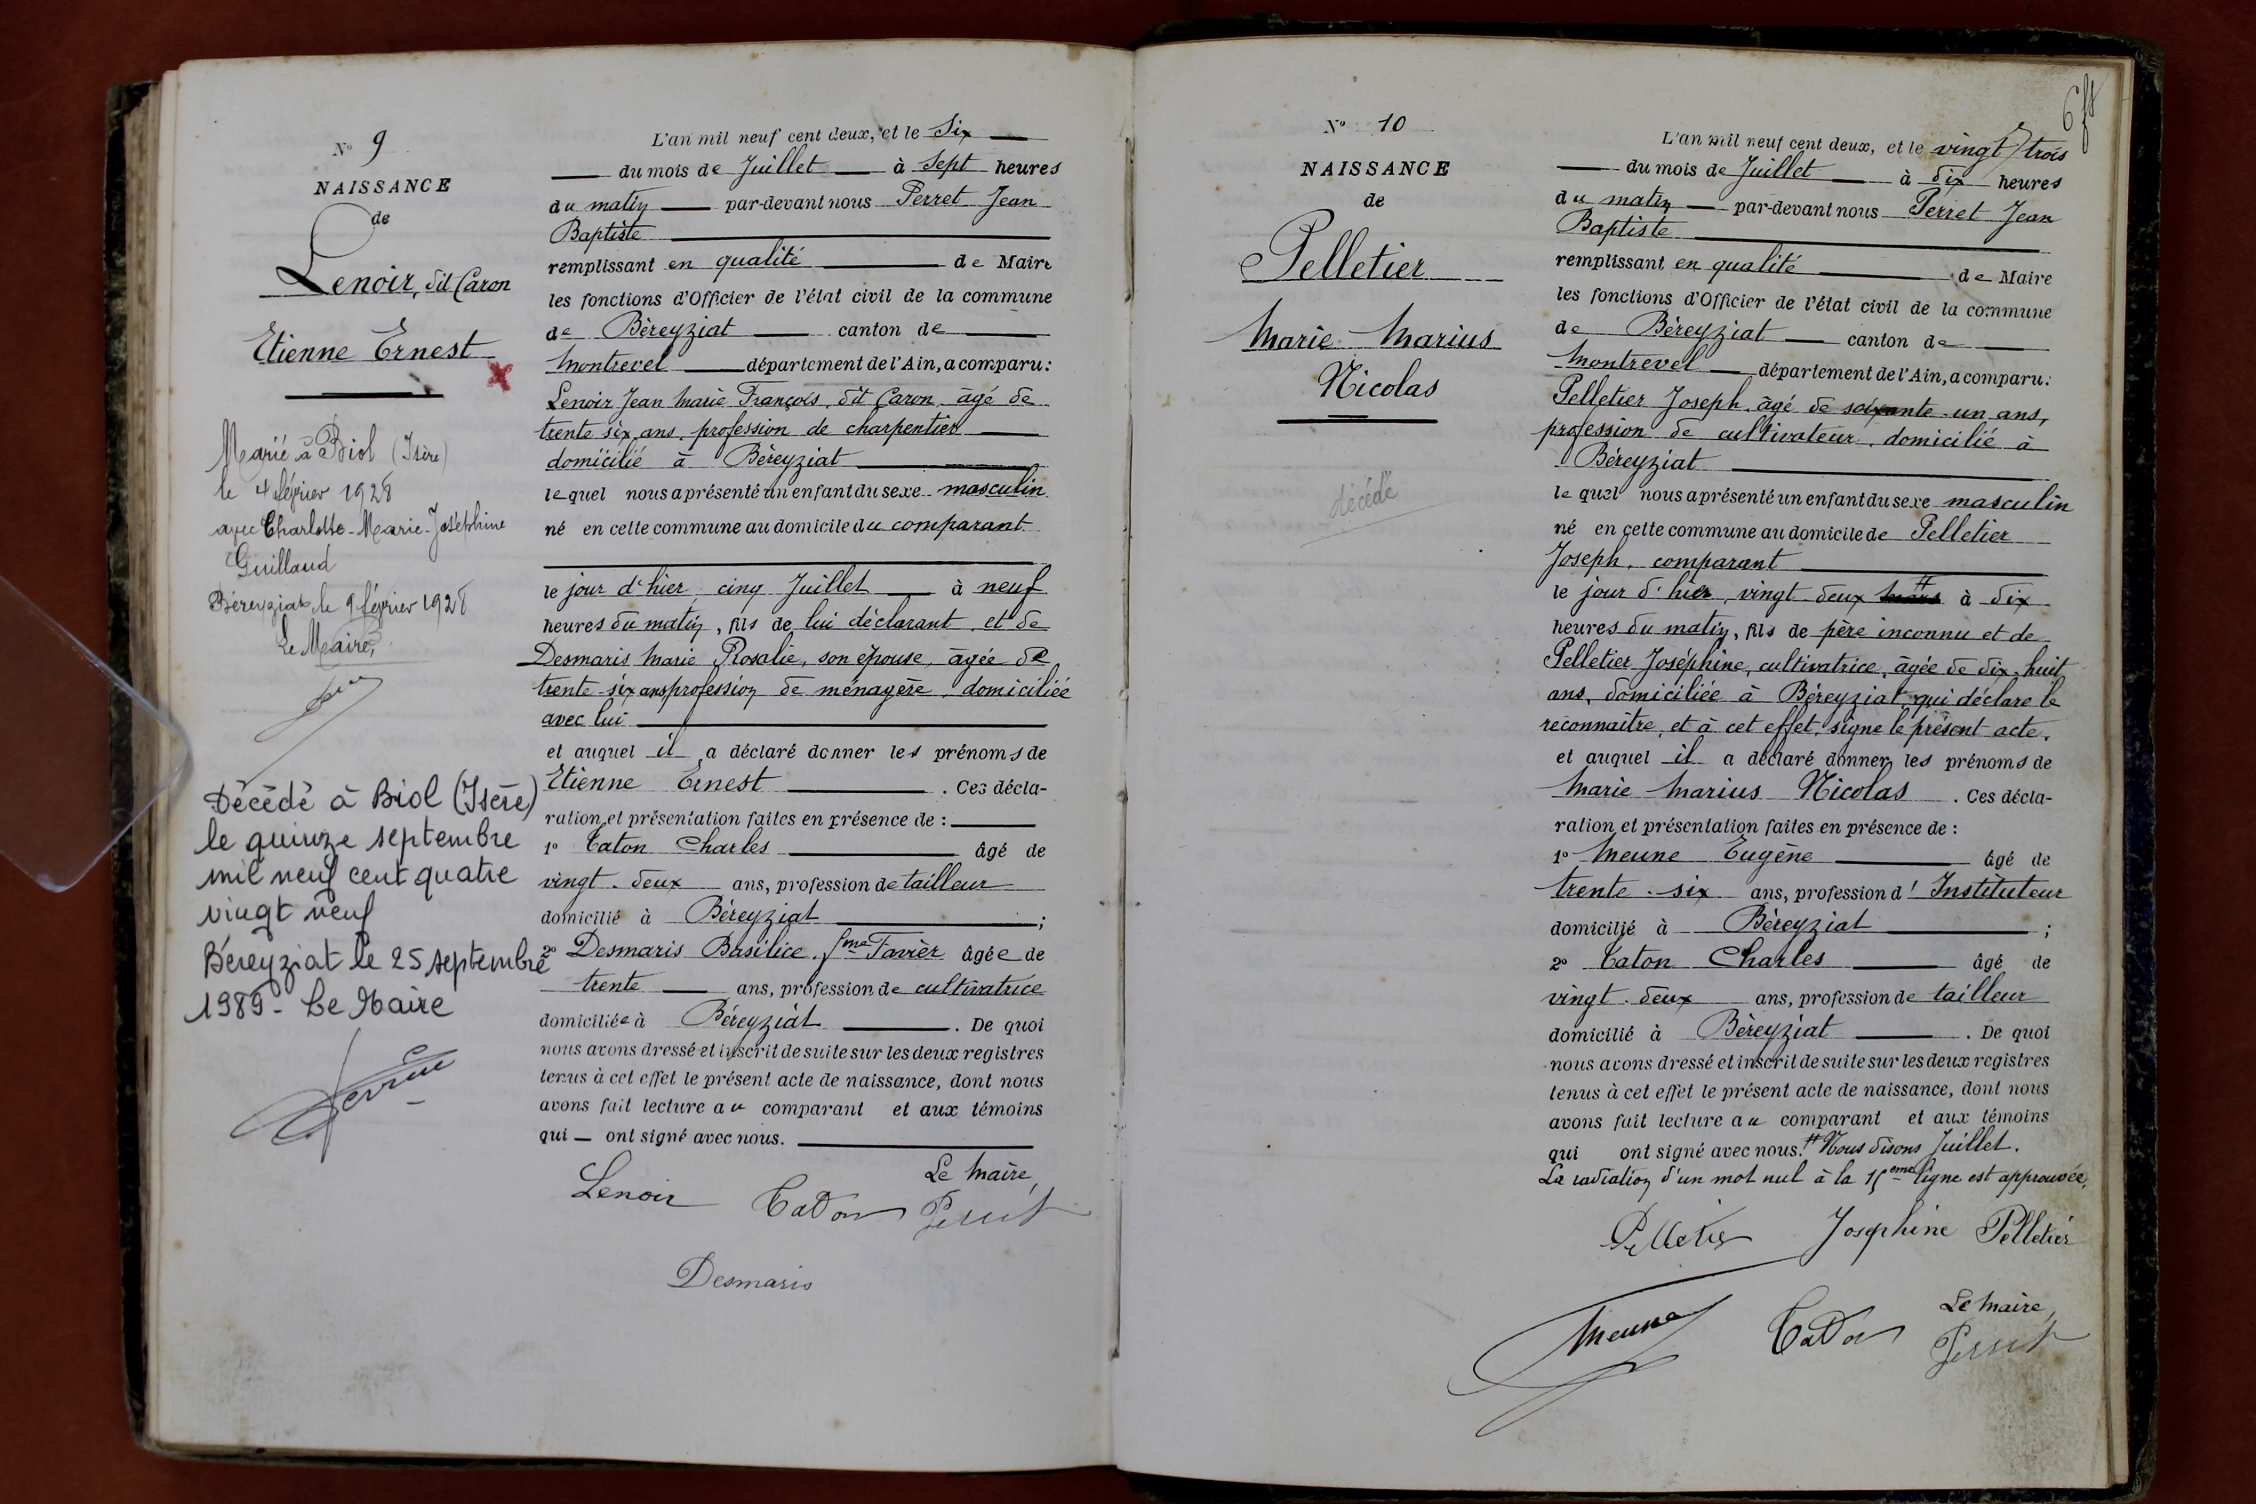 N° 9
NAISSANCE
de
Lenoir, dit Caron
Etienne Ernest
Marié à Biol (Isère)
le 4 février 1928
avec Charlotte-Marie-Joséphine
Guillaud
Béreyziat le 9 février 1928
Le Maire,
Décédé à Biol (Isère)
le quinze septembre
mil neuf cent quatre
vingt neuf
Béreyziat le 25 septembre
1989 - Le Maire
L'an mil neuf cent deux, et le Six
du mois de Juillet à Sept heures
du matin par-devant nous Perret Jean
Baptiste
remplissant en qualité de Maire
les fonctions d'Officier de l'état civil de la commune
de Béreyziat canton de
Montrevel département de l'Ain, a comparu:
Lenoir Jean Marie François, dit Caron, âgé de
trente six ans, profession de charpentier
domicilié à Béreyziat
lequel nous a présenté un enfant du sexe masculin
né en cette commune au domicile du comparant
le jour d'hier cinq Juillet à neuf
heures du matin, fils de lui déclarant et de
Desmaris Marie Rosalie, son épouse, âgée de
trente-six ans profession de ménagère, domiciliée
avec lui
et auquel il a déclaré donner les prénoms de
Etienne Ernest. Ces décla-
ration et présentation faites en présence de :
1° Caton Charles âgé de
vingt-deux ans, profession de tailleur
domicilié à Béreyziat ;
2° Desmaris Basilice, fme Favier âgée de
trente ans, profession de cultivatrice
domiciliée à Béreyziat. De quoi
nous avons dressé et inscrit de suite sur les deux registres
tenus à cet effet le présent acte de naissance, dont nous
avons fait lecture au comparant et aux témoins
qui ont signé avec nous.
Le Maire,
Lenoir Caton Perret
Desmaris
6
N° 10
NAISSANCE
de
Pelletier
Marie Marius
Nicolas
décédé
L'an mil neuf cent deux, et le vingt-trois
du mois de Juillet à dix heures
du matin par-devant nous Perret Jean
Baptiste
remplissant en qualité de Maire
les fonctions d'Officier de l'état civil de la commune
de Béreyziat canton de
Montrevel département de l'Ain, a comparu:
Pelletier Joseph, âgé de soixante-un ans,
profession de cultivateur, domicilié à
Béreyziat
lequel nous a présenté un enfant du sexe masculin
né en cette commune au domicile de Pelletier
Joseph, comparant
le jour d'hier, vingt-deux mars # à dix
heures du matin, fils de père inconnu et de
Pelletier Joséphine, cultivatrice, âgée de dix-huit
ans, domiciliée à Béreyziat, qui déclare le
reconnaître, et à cet effet, signe le présent acte.
et auquel il a déclaré donner les prénoms de
Marie Marius Nicolas. Ces décla-
ration et présentation faites en présence de :
1° Meune Eugène âgé de
trente-six ans, profession d'Instituteur
domicilié à Béreyziat ;
2° Caton Charles âgé de
vingt-deux ans, profession de tailleur
domicilié à Béreyziat. De quoi
nous avons dressé et inscrit de suite sur les deux registres
tenus à cet effet le présent acte de naissance, dont nous
avons fait lecture au comparant et aux témoins
qui ont signé avec nous. # Nous disons Juillet.
La radiation d'un mot nul à la 15eme ligne est approuvée.
Pelletier Joséphine Pelletier
Le Maire,
Meune Caton Perret